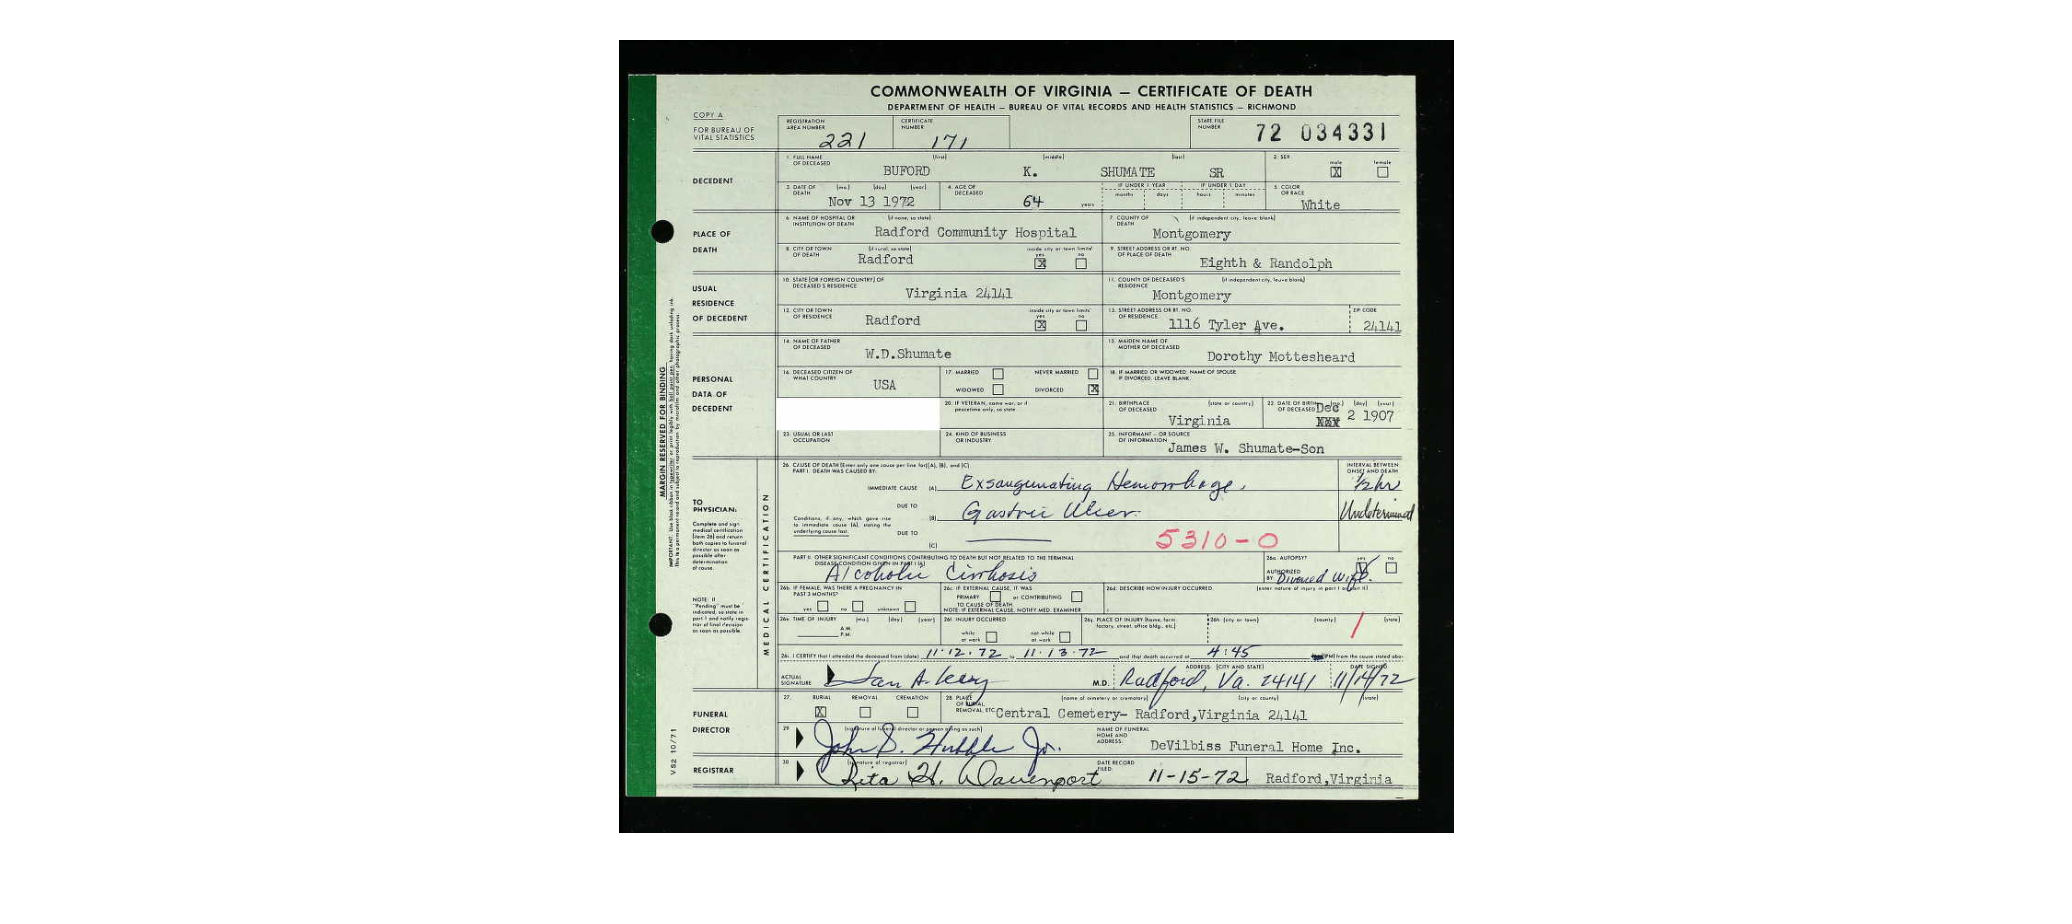 COMMONWEALTH OF VIRGINIA — CERTIFICATE OF DEATH
DEPARTMENT OF HEALTH — BUREAU OF VITAL RECORDS AND HEALTH STATISTICS — RICHMOND
COPY A
FOR BUREAU OF VITAL STATISTICS
REGISTRATION AREA NUMBER 221
CERTIFICATE NUMBER 171
STATE FILE NUMBER 72 034331
DECEDENT
1. FULL NAME OF DECEASED (first) (middle) (last)
BUFORD K. SHUMATE SR
2. SEX male X female
3. DATE OF DEATH (mo.) (day) (year)
Nov 13 1972
4. AGE OF DECEASED 64 years
IF UNDER 1 YEAR months days
IF UNDER 1 DAY hours minutes
5. COLOR OR RACE White
PLACE OF DEATH
6. NAME OF HOSPITAL OR INSTITUTION OF DEATH (if none, so state)
Radford Community Hospital
7. COUNTY OF DEATH (if independent city, leave blank)
Montgomery
8. CITY OR TOWN OF DEATH (if rural, so state) Radford
inside city or town limits? yes X no
9. STREET ADDRESS OR RT. NO. OF PLACE OF DEATH
Eighth & Randolph
USUAL RESIDENCE OF DECEDENT
10. STATE (OR FOREIGN COUNTRY) OF DECEASED'S RESIDENCE
Virginia 24141
11. COUNTY OF DECEASED'S RESIDENCE (if independent city, leave blank)
Montgomery
12. CITY OR TOWN OF RESIDENCE Radford
inside city or town limits? yes X no
13. STREET ADDRESS OR RT. NO. OF RESIDENCE 1116 Tyler Ave.
ZIP CODE 24141
PERSONAL DATA OF DECEDENT
14. NAME OF FATHER OF DECEASED W.D.Shumate
15. MAIDEN NAME OF MOTHER OF DECEASED Dorothy Mottesheard
16. DECEASED CITIZEN OF WHAT COUNTRY USA
17. MARRIED NEVER MARRIED
WIDOWED DIVORCED X
18. IF MARRIED OR WIDOWED, NAME OF SPOUSE
IF DIVORCED, LEAVE BLANK
20. IF VETERAN, name war, or if peacetime only, so state
21. BIRTHPLACE OF DECEASED (state or country) Virginia
22. DATE OF BIRTH OF DECEASED (mo.) (day) (year) Dec 2 1907
23. USUAL OR LAST OCCUPATION
24. KIND OF BUSINESS OR INDUSTRY
25. INFORMANT – OR SOURCE OF INFORMATION James W. Shumate-Son
MARGIN RESERVED FOR BINDING
MEDICAL CERTIFICATION
TO PHYSICIAN:
Complete and sign medical certification (item 26) and return both copies to funeral director as soon as possible after determination of cause.
NOTE: If "Pending" must be indicated, so state in part I and notify registrar of final decision as soon as possible.
26. CAUSE OF DEATH (Enter only one cause per line for (A), (B), and (C)
PART I. DEATH WAS CAUSED BY:
INTERVAL BETWEEN ONSET AND DEATH
IMMEDIATE CAUSE (A) Exsanguinating Hemorrhage. 1/2 hr
DUE TO
(B) Gastric Ulcer.
Conditions, if any, which gave rise to immediate cause (A), stating the underlying cause last.
DUE TO
(C)
5310-0
PART II. OTHER SIGNIFICANT CONDITIONS CONTRIBUTING TO DEATH BUT NOT RELATED TO THE TERMINAL DISEASE CONDITION GIVEN IN PART I (A)
Alcoholic Cirrhosis
26a. AUTOPSY? yes no
AUTHORIZED BY Divorced wife.
26b. IF FEMALE, WAS THERE A PREGNANCY IN PAST 3 MONTHS?
yes no unknown
26c. IF EXTERNAL CAUSE, IT WAS
PRIMARY or CONTRIBUTING
TO CAUSE OF DEATH
NOTE: IF EXTERNAL CAUSE, NOTIFY MED. EXAMINER
26d. DESCRIBE HOW INJURY OCCURRED. (enter nature of injury in part I or part II)
26e. TIME OF INJURY (mo.) (day) (year)
A.M.
P.M.
26f. INJURY OCCURRED
while at work not while at work
26g. PLACE OF INJURY (home, farm, factory, street, office bldg., etc.)
26h. (city or town) (county) (state)
26i. I CERTIFY that I attended the deceased from (date) 11·12·72 to 11·13·72 and that death occurred at 4:45 (PM) from the cause stated above
ACTUAL SIGNATURE
M.D.
ADDRESS: (CITY AND STATE) Radford, Va. 24141
DATE SIGNED 11/14/72
FUNERAL DIRECTOR
27. BURIAL X REMOVAL CREMATION
28. PLACE OF BURIAL, REMOVAL, ETC. (name of cemetery or crematory) (city or county) (state)
Central Cemetery- Radford,Virginia 24141
29. (signature of funeral director or person acting as such)
NAME OF FUNERAL HOME AND ADDRESS:
DeVilbiss Funeral Home Inc.
REGISTRAR
30. (signature of registrar)
Rita H. Davenport
DATE RECORD FILED: 11-15-72
Radford,Virginia
VS2 10/71